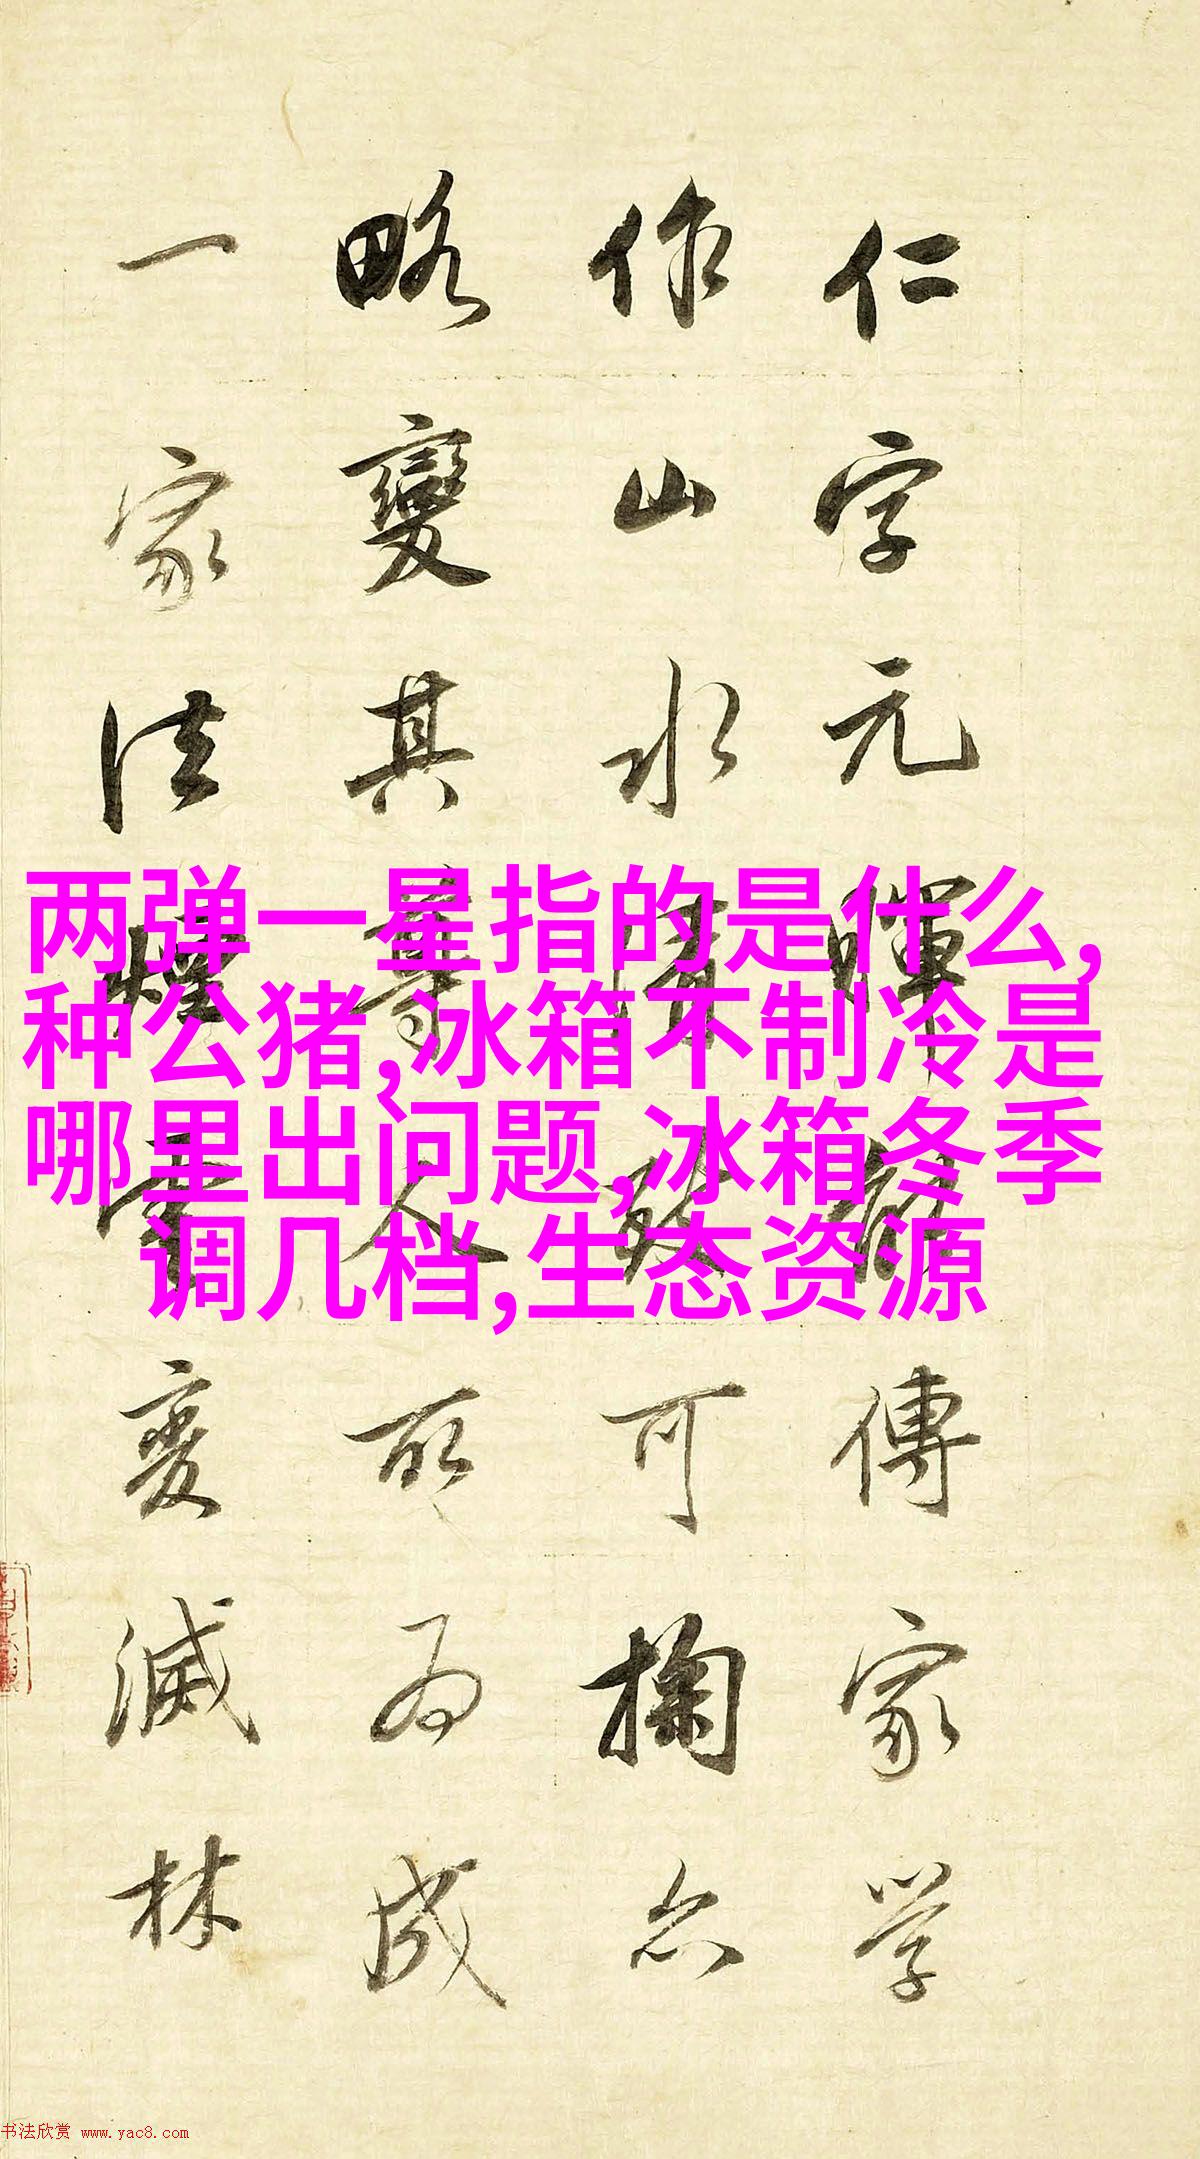 仁字元暉傳家学
作山水清致可掬亦
略變其尊人所為成
一家法煙雲变滅林
两弹一星指的是什么,
种公猪,冰箱不制冷是
哪里出问题,冰箱冬季
调几档,生态资源
书法欣赏 www.yac8.com